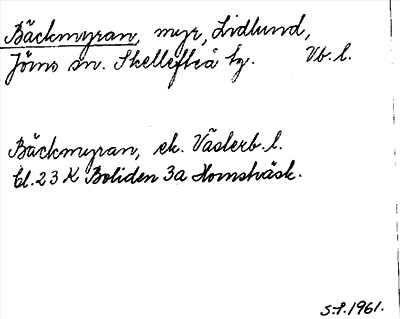 Bäckmyran, myr, Lidlund,
Jörns sn. Skellefteå tg. Vb. l.
Bäckmyran, ek. Västerb. l.
Bl. 23 K Boliden 3a Hornsträsk.
S.P. 1961.